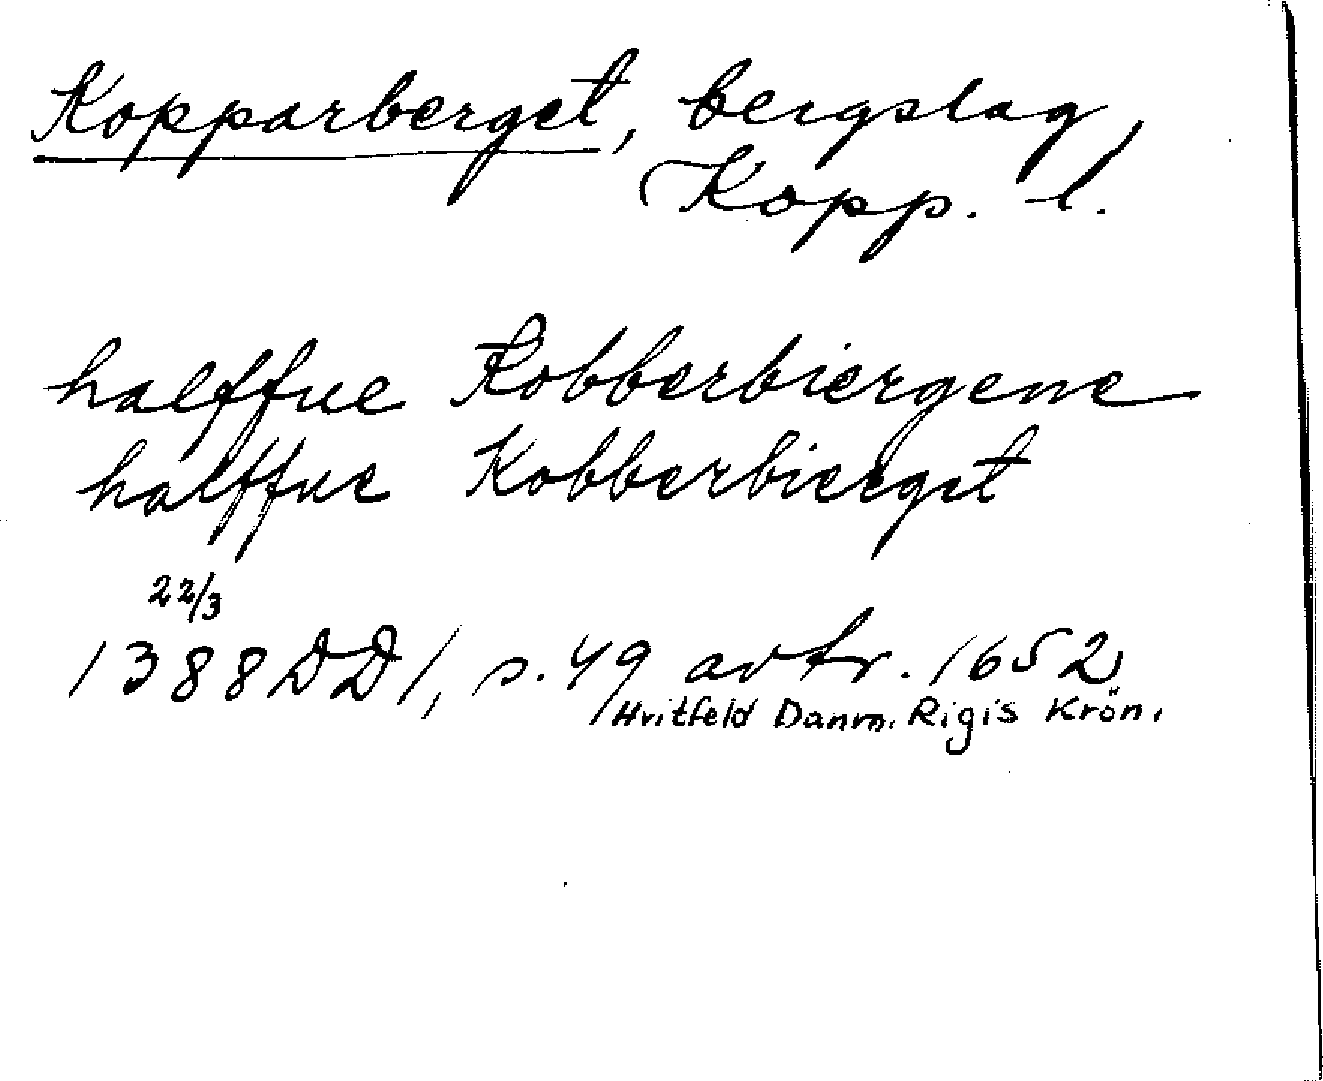 Kopparberget, bergslag,
Kopp. l.
halffue Kobberbiergene
halffue Kobberbierget
22/3
1388 DD 1, s. 49 avtr. 1652
Hvitfeld Danm. Rigis Krön.